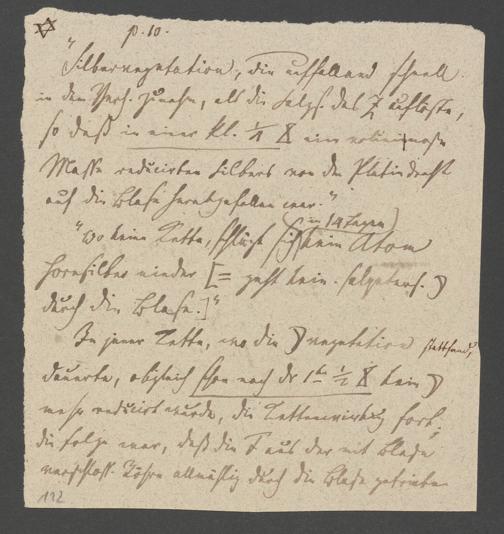 p. 10.
"Silbervegetation, die auffallend schnell
in den Versf. zunahm, als die Salzs. das Z auflöste,
so daß in einer kl. 1/4 X eine voluminose
Masse reducirten Silbers von den Platindraht
auf die Blase herabgefallen war."
"wo keine Kette, schlägt sich (in 14 Tagen) kein Atom
Hornsilber nieder [= geht kein salpeters. ☽
durch die Blase.]"
In jener Kette, wo die ☽vegetation stattfand,
dauerte, obgleich schon nach der 1ten 1/2 X kein ☽
mehr reducirt wurde, die Kettenwirkung fort,
die Folge war, daß die F aus der mit Blase
verschloss. Röhre allmählig durch die Blase getrieben
112